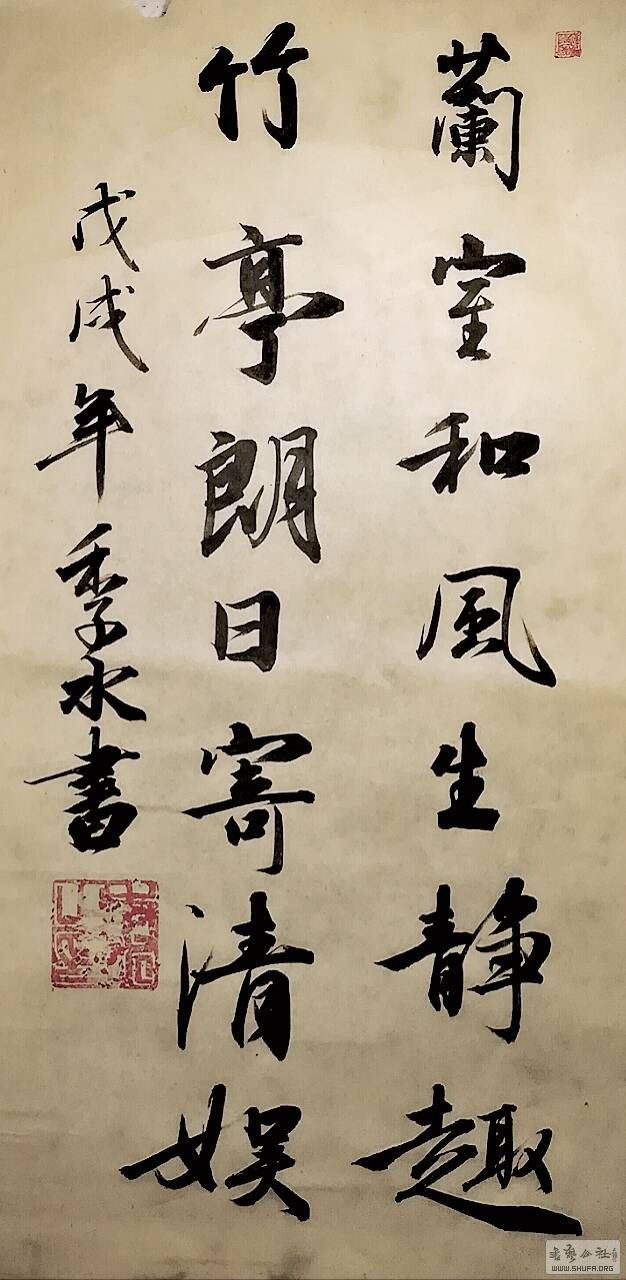 蘭室和風生静趣
竹亭朗日寄清娱
戊戌年季水書
WWW.SHUFA.ORG